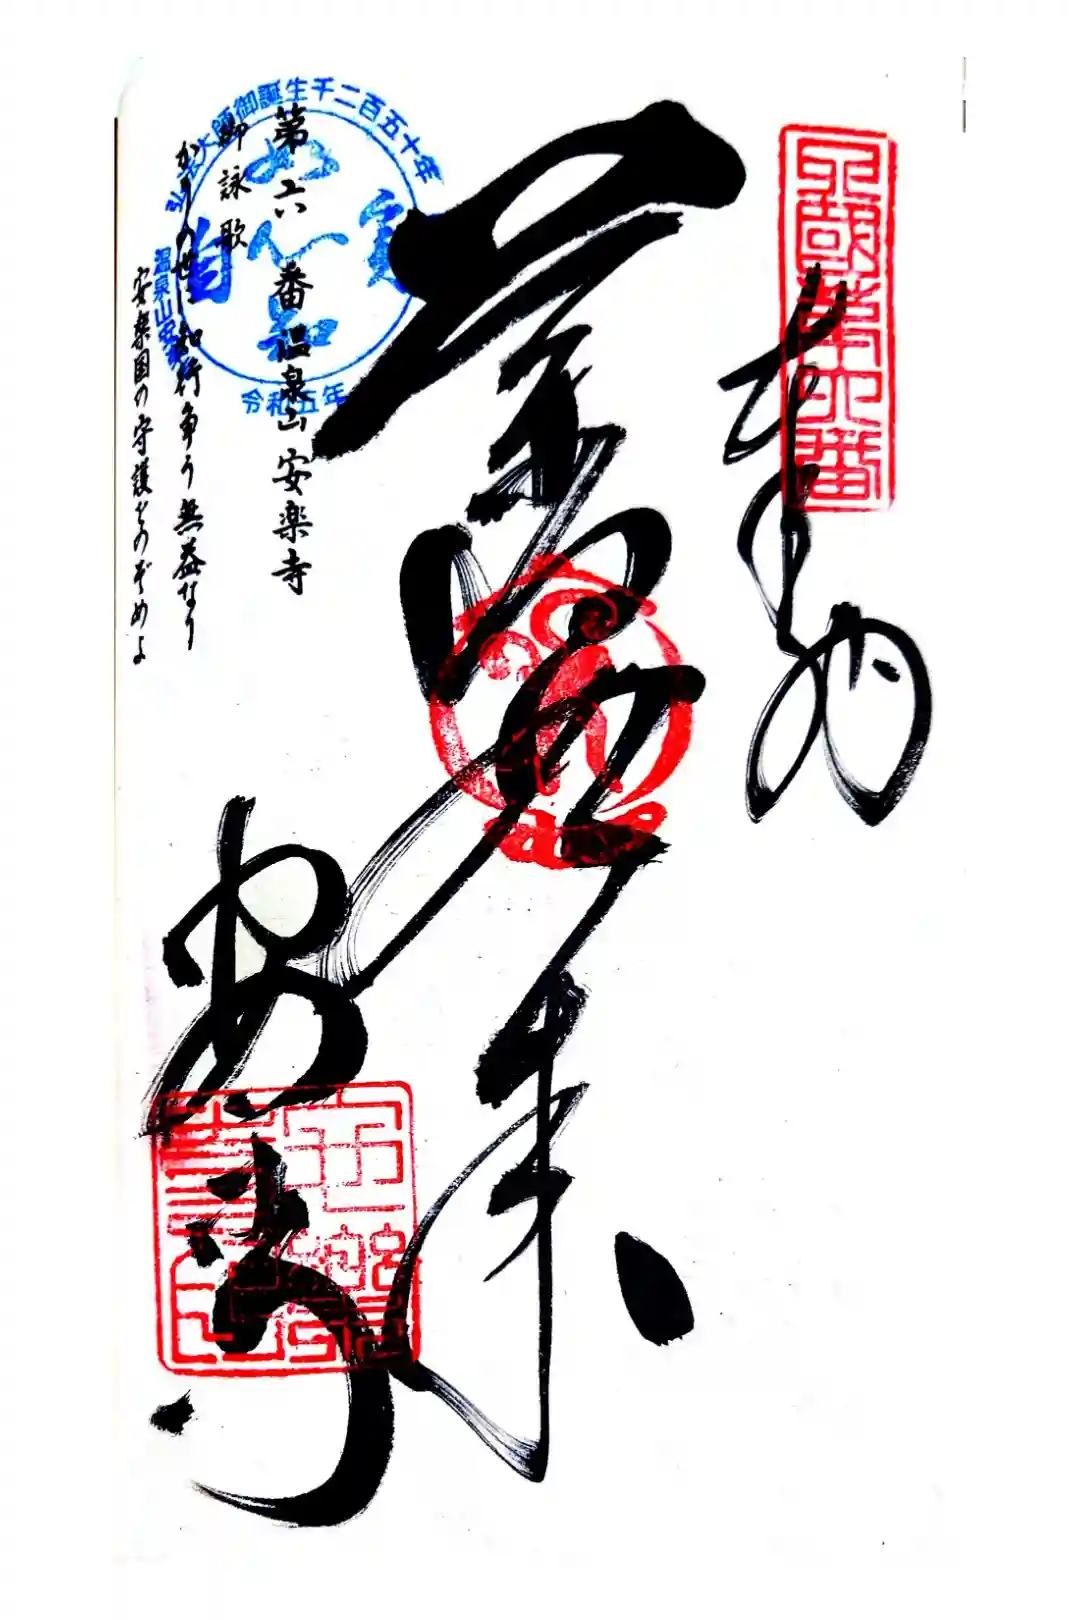 四國第六番
奉納
薬師如来
安楽寺
第六番 温泉山 安楽寺
御詠歌
かりの世に知行争う無益なり
安楽国の守護をのぞめよ
弘法大師御誕生千二百五十年
如實知自心
温泉山安楽寺
令和五年